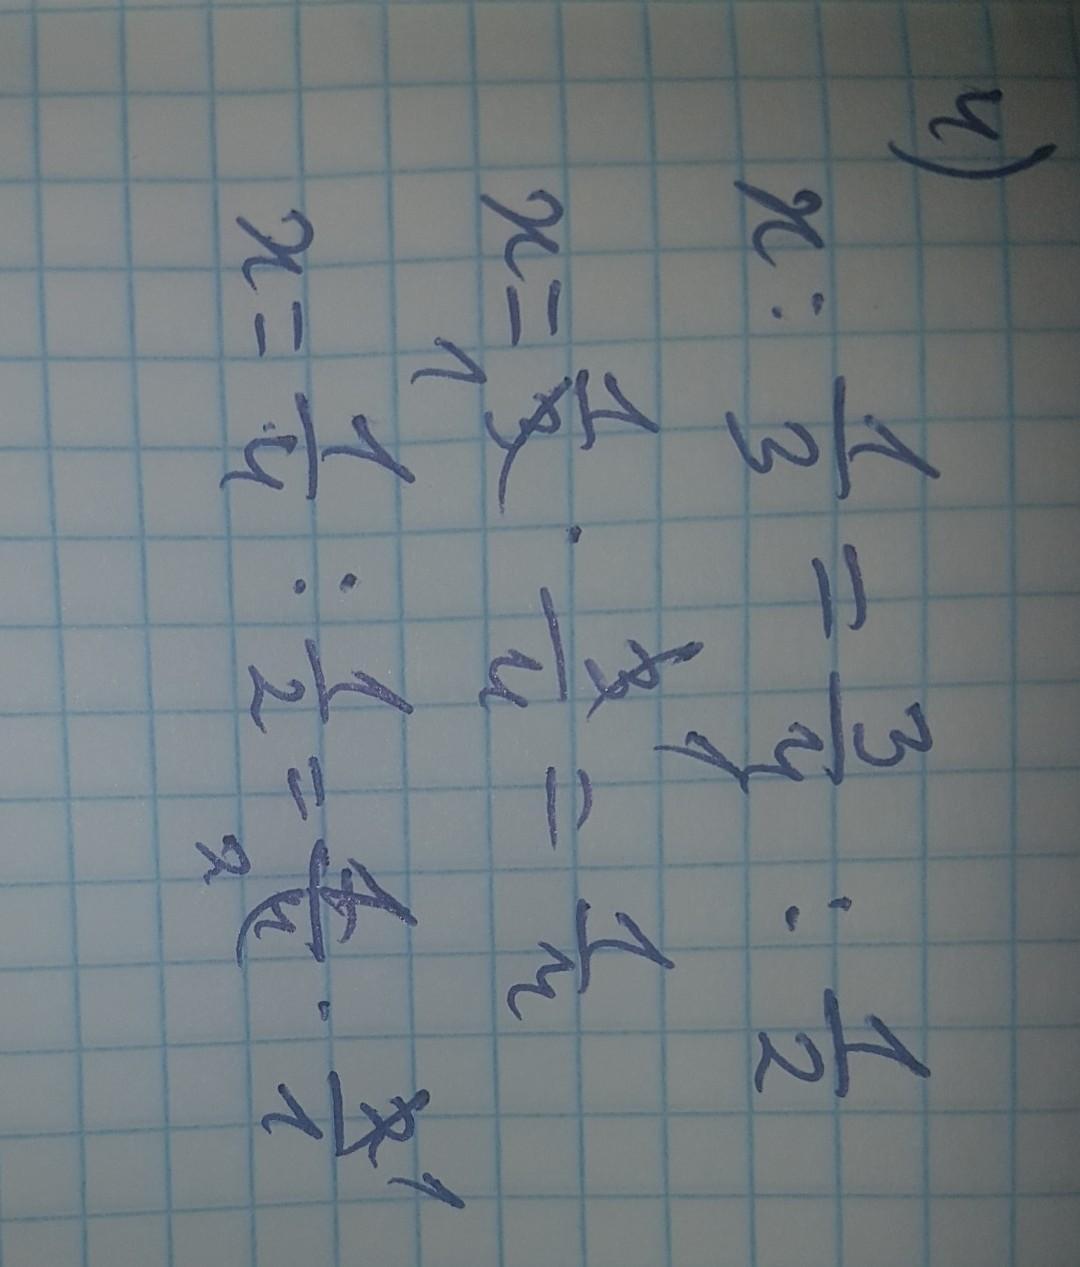 4)
x : 1/3 = 3/4 : 1/2
x = 1/3 1 · 3/4 1 = 1/4
x = 1/4 : 1/2 = 1/4 2 · 2/1 1